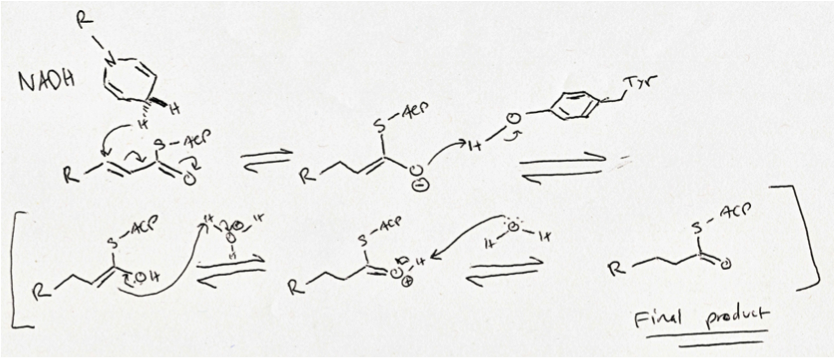 R
N
NADH
H H
S-ACP
R O
S-ACP
R O ⊖
H O Tyr
S-ACP
R OH
H O H
H
S-ACP
R O H
⊕
O
H H
S-ACP
R O
Final product